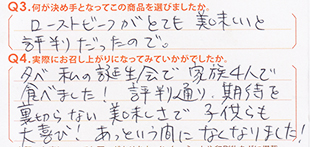 Q3.何が決め手となってこの商品を選びましたか。
ローストビーフがとても美味いと
評判だったので。
Q4.実際にお召し上がりになってみていかがでしたか。
夕べ私の誕生会で家族4人で
食べました！評判通り、期待を
裏切らない美味しさで子供らも
大喜び！あっという間になくなりました！